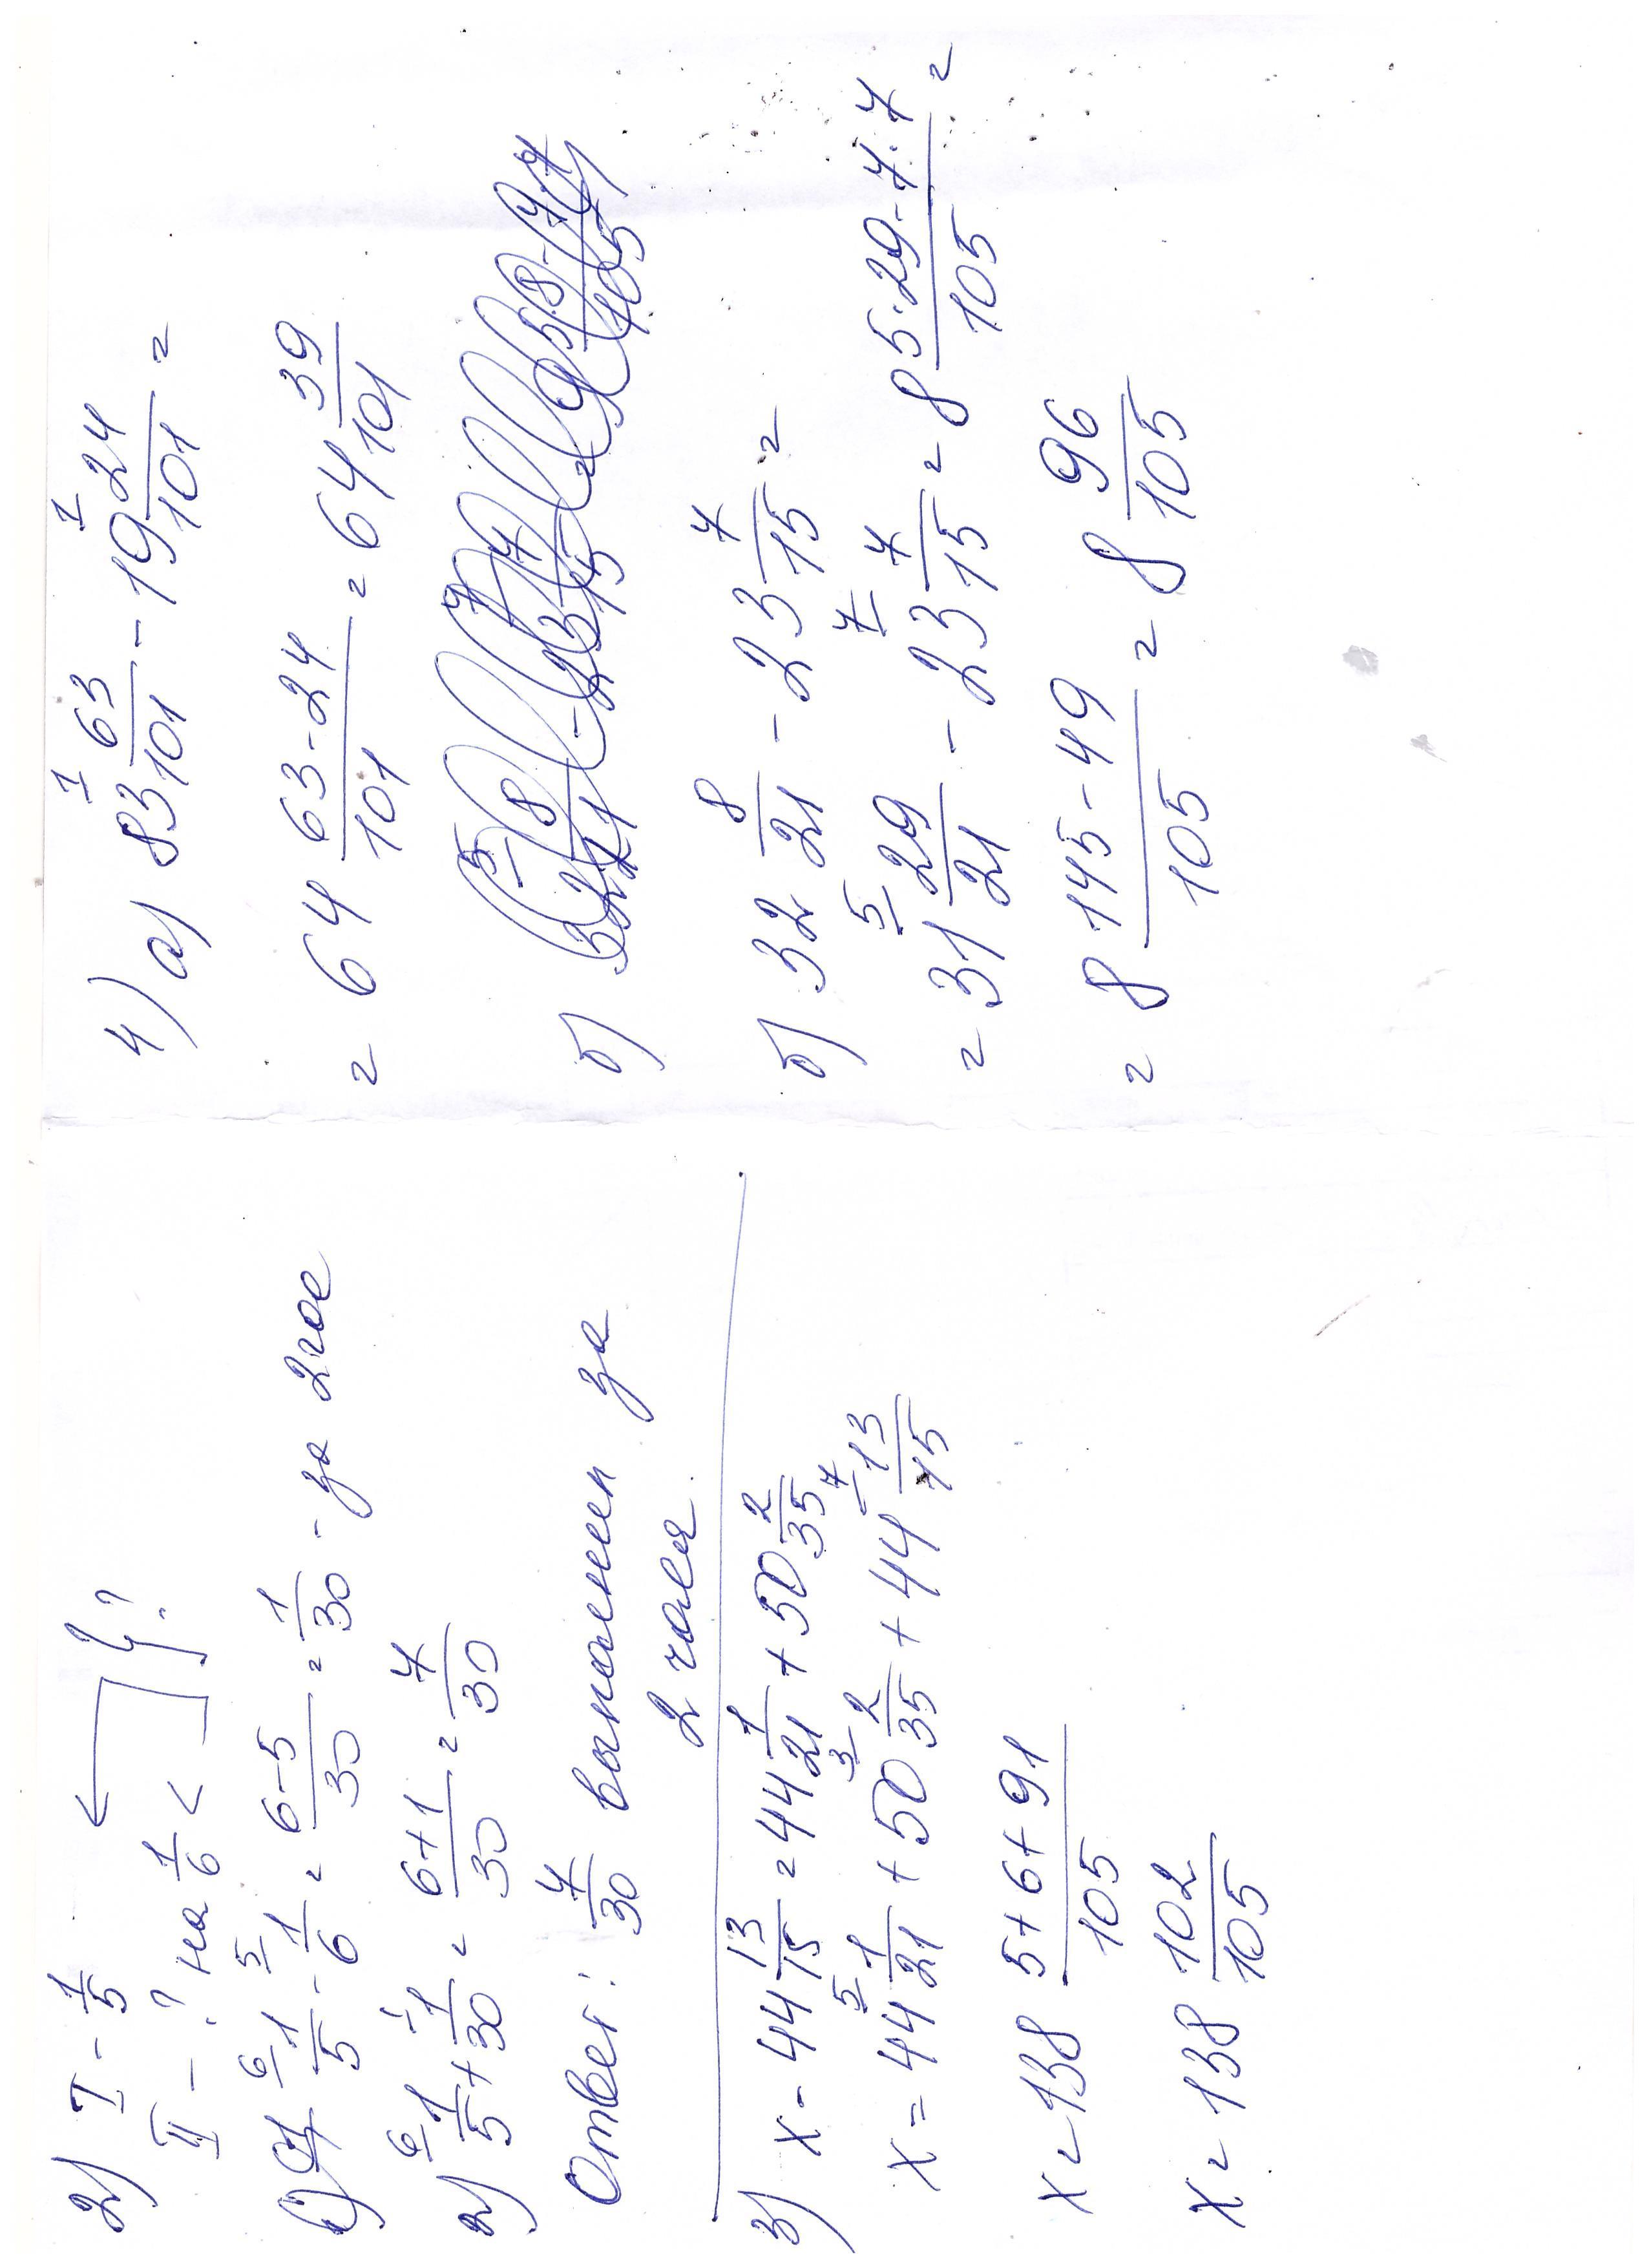 2) I - 1/5
II - ? на 1/6 <
} ?
1) 1/5 - 1/6 = (6-5)/30 = 1/30 - за 2 час
2) 1/5 + 1/30 = (6+1)/30 = 7/30
Ответ: 7/30 выполнен за
2 часа
3) x - 44 13/15 = 44 1/21 + 50 2/35
x = 44 1/21 + 50 2/35 + 44 13/15
x = 138 (5+6+91)/105
x = 138 102/105
4) а) 83 63/101 - 19 24/101 =
= 64 (63-24)/101 = 64 39/101
б)
б) 32 8/21 - 23 7/15 =
= 31 29/21 - 23 7/15 = 8 (5·29-7·7)/105 =
= 8 (145-49)/105 = 8 96/105